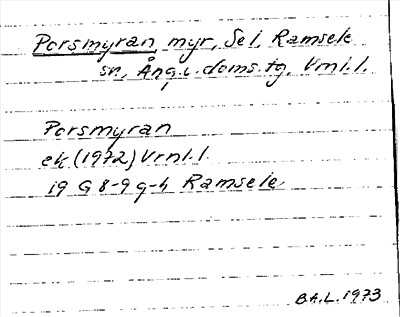 Porsmyran, myr, Sel, Ramsele
sn, Ång.l. doms.tg, Vrnl.l.
Porsmyran
ek (1972) Vrnl.l.
19 G 8-9 g-h Ramsele
B.A.L. 1973